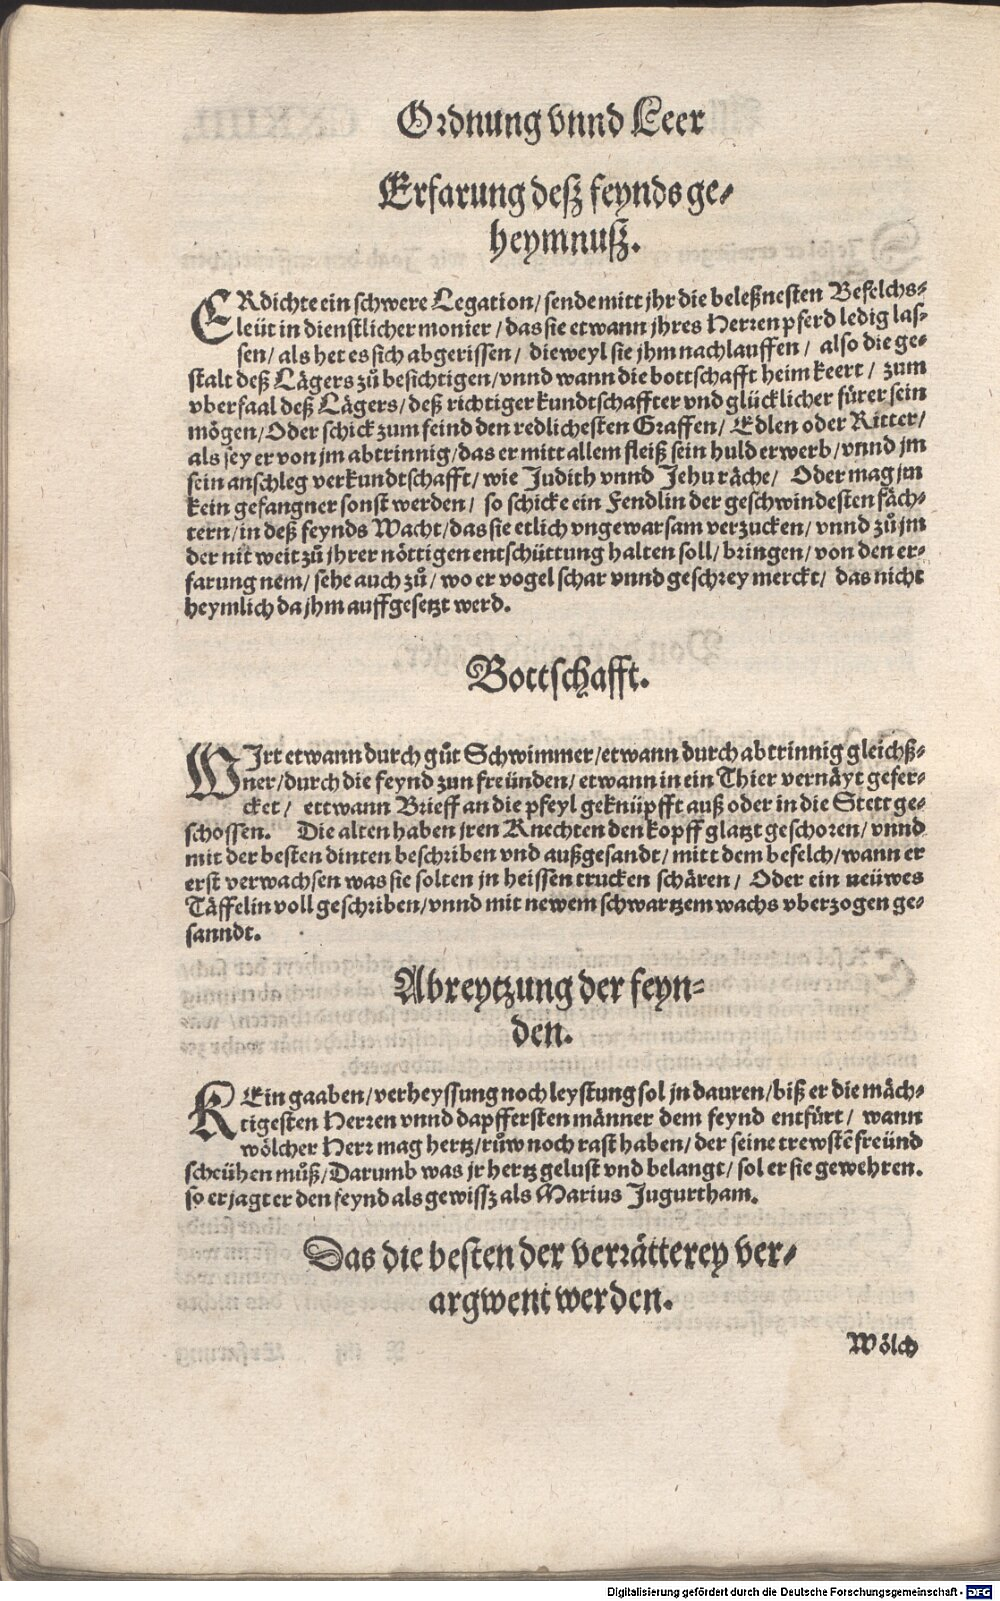 Ordnung vnnd Leer
Erfarung desz feynds ge-
heymnusz.
ERdichte ein schwere Legation/ sende mitt jhr die beleßnesten Befelchs-
leüt in dienstlicher monier/ das sie etwann jhres Herren pferd ledig las-
sen/ als het es sich abgerissen/ dieweyl sie jhm nachlauffen/ also die ge-
stalt deß Lägers zů besichtigen/ vnnd wann die bottschafft heim keert/ zum
vberfaal deß Lägers/ deß richtiger kundtschaffter vnd glücklicher fürer sein
mögen/ Oder schick zum feind den redlichesten Graffen/ Edlen oder Ritter/
als sey er von jm abtrinnig/ das er mitt allem fleiß sein huld erwerb/ vnnd jm
sein anschleg verkundtschafft/ wie Judith vnnd Jehu räche/ Oder mag jm
kein gefangner sonst werden/ so schicke ein Fendlin der geschwindesten fäch-
tern/ in deß feynds Wacht/ das sie etlich vngewarsam verzucken/ vnnd zů jm
der nit weit zů jhrer nöttigen entschüttung halten soll/ bringen/ von den er-
farung nem/ sehe auch zů/ wo er vogel schar vnnd geschrey merckt/ das nicht
heymlich da jhm auffgesetzt werd.
Bottschafft.
WJrt etwann durch gůt Schwimmer/ etwann durch abtrinnig gleichß-
ner/ durch die feynd zun freünden/ etwann in ein Thier vernäyt gefer-
cket/ ettwann Brieff an die pfeyl geknüpfft auß oder in die Stett ge-
schossen. Die alten haben jren Knechten den kopff glatzt geschoren/ vnnd
mit der besten dinten beschriben vnd außgesandt/ mitt dem befelch/ wann er
erst verwachsen was sie solten jn heissen trucken schären/ Oder ein neüwes
Täffelin voll geschriben/ vnnd mit newem schwartzem wachs vberzogen ge-
sanndt.
Abreytzung der feyn-
den.
KEin gaaben/ verheyssung noch leystung sol jn dauren/ biß er die mäch-
tigesten Herren vnnd dapffersten männer dem feynd entfürt/ wann
wölcher Herr mag hertz/ růw noch rast haben/ der seine trewstē freünd
scheühen můß/ Darumb was jr hertz gelust vnd belangt/ sol er sie gewehren.
so erjagt er den feynd als gewissz als Marius Jugurtham.
Das die besten der verrätterey ver-
argwent werden.
Wölch
Digitalisierung gefördert durch die Deutsche Forschungsgemeinschaft - DFG